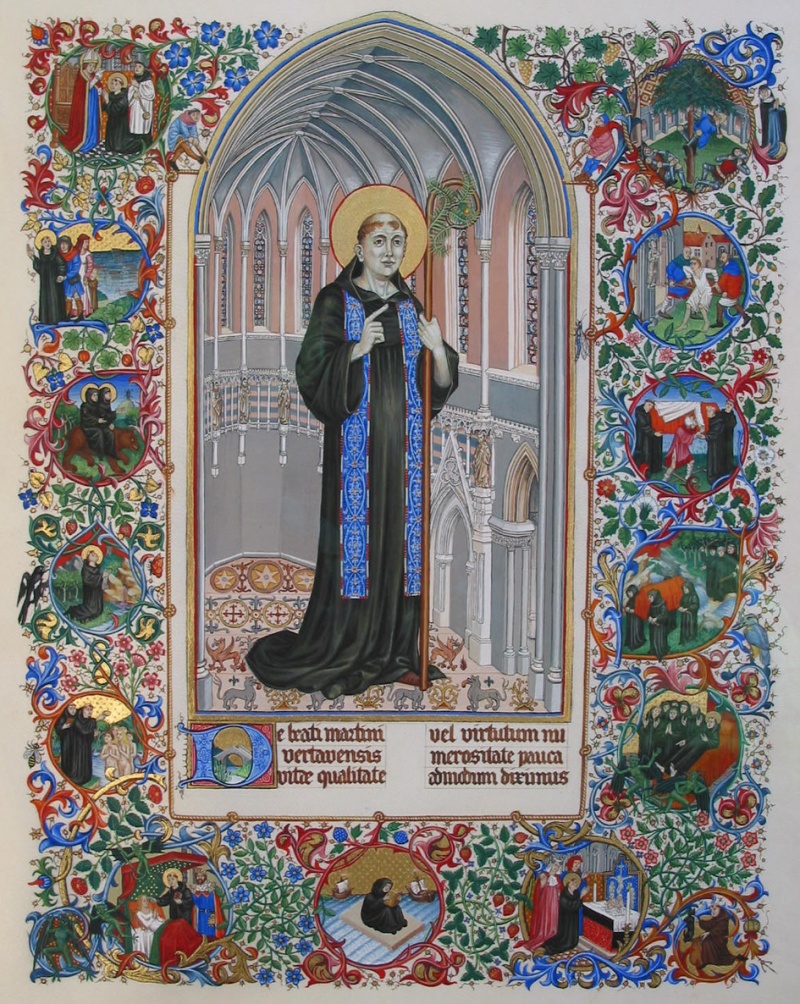 De beati martini
vertavensis
vitæ qualitate
vel virtutum nu
merositate pauca
admodum diximus